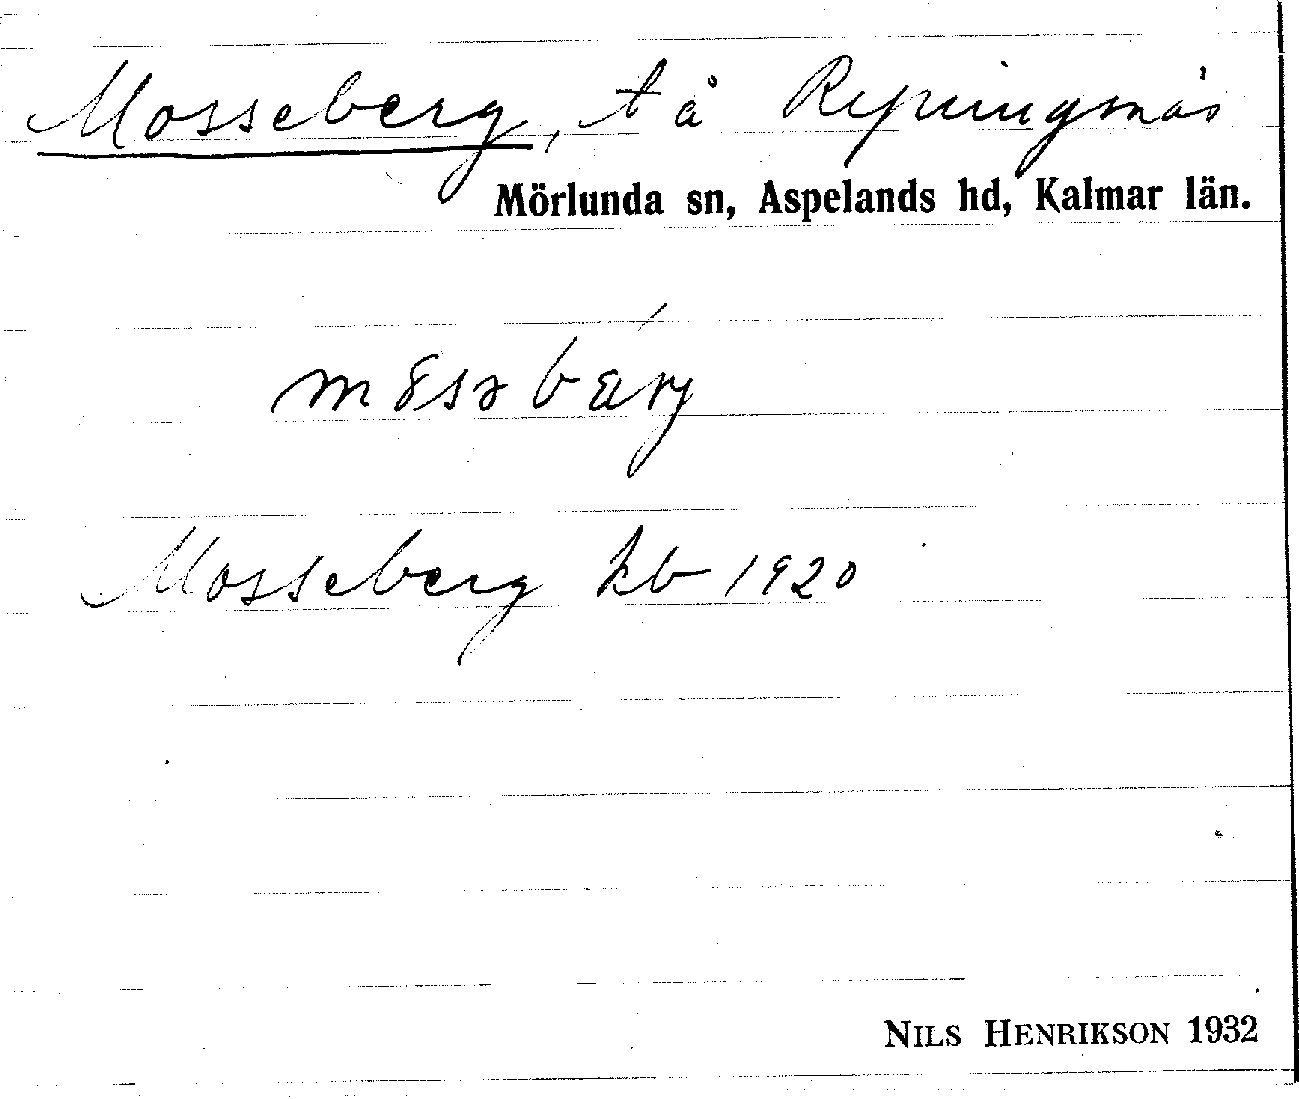 Mosseberg, t å Repningsmås
Mörlunda sn, Aspelands hd, Kalmar län.
Mosseberg kb 1920
NILS HENRIKSON 1932